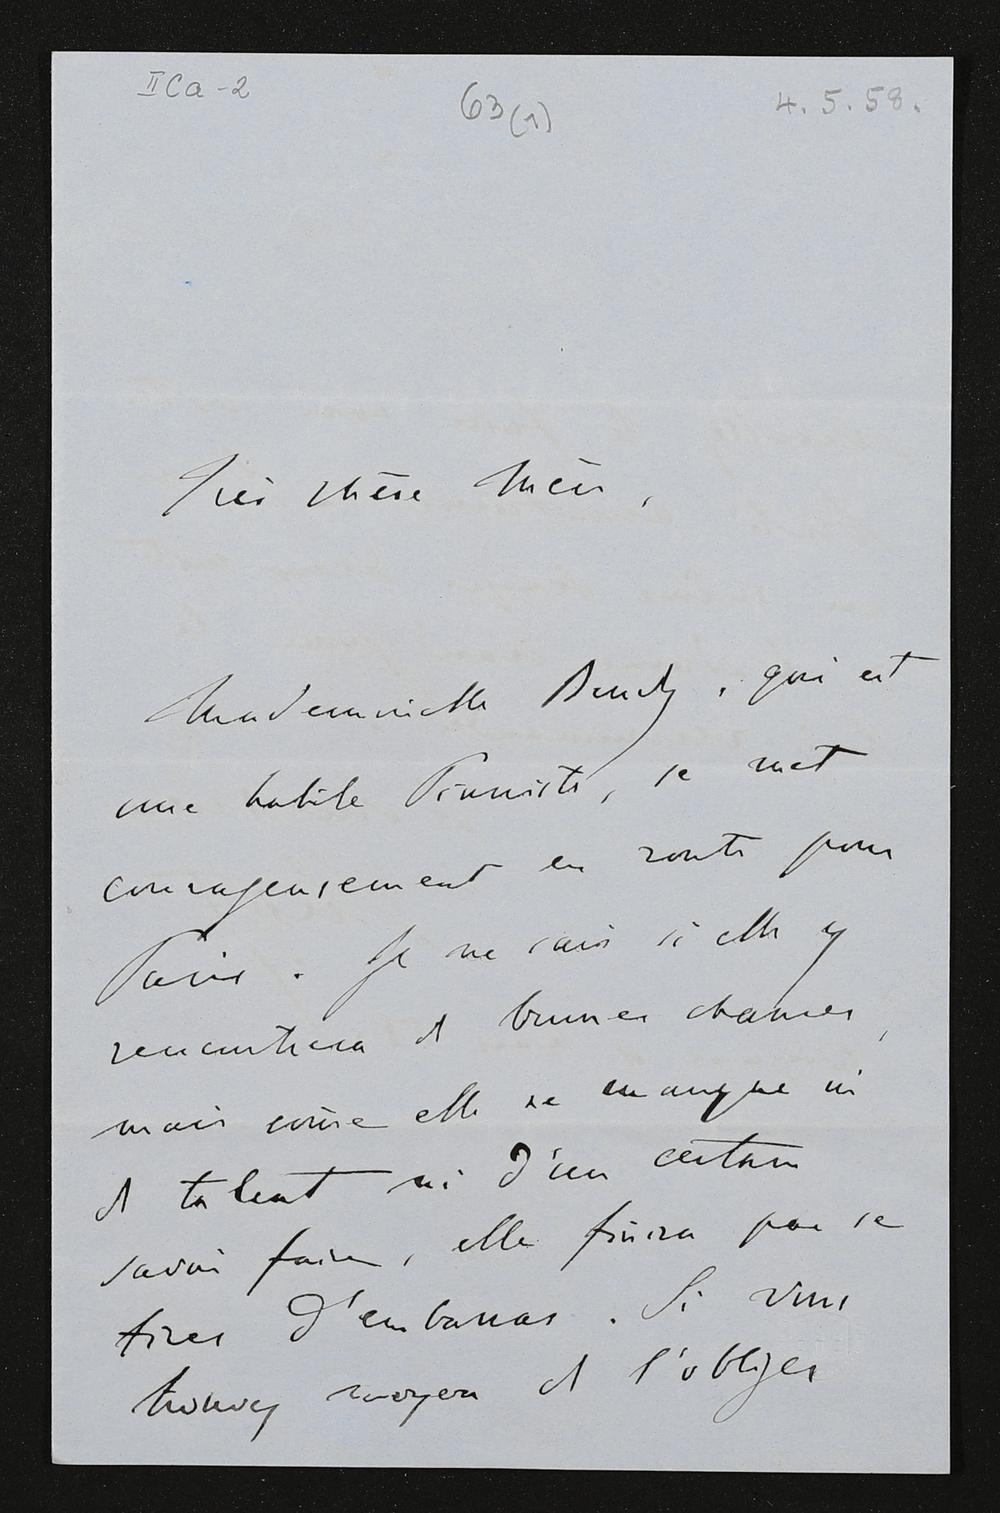 II Ca - 2
63 (1)
4. 5. 58.
Très chère Mère,
Mademoiselle , qui est
une habile Pianiste, se met
courageusement en route pour
Paris. Je ne sais si elle y
rencontrera de bonnes chances,
mais come elle ne manque ni
de talent ni d'un certain
savoir faire, elle finira par se
tirer d'embarras. Si vous
trouvez moyen de l'obliger